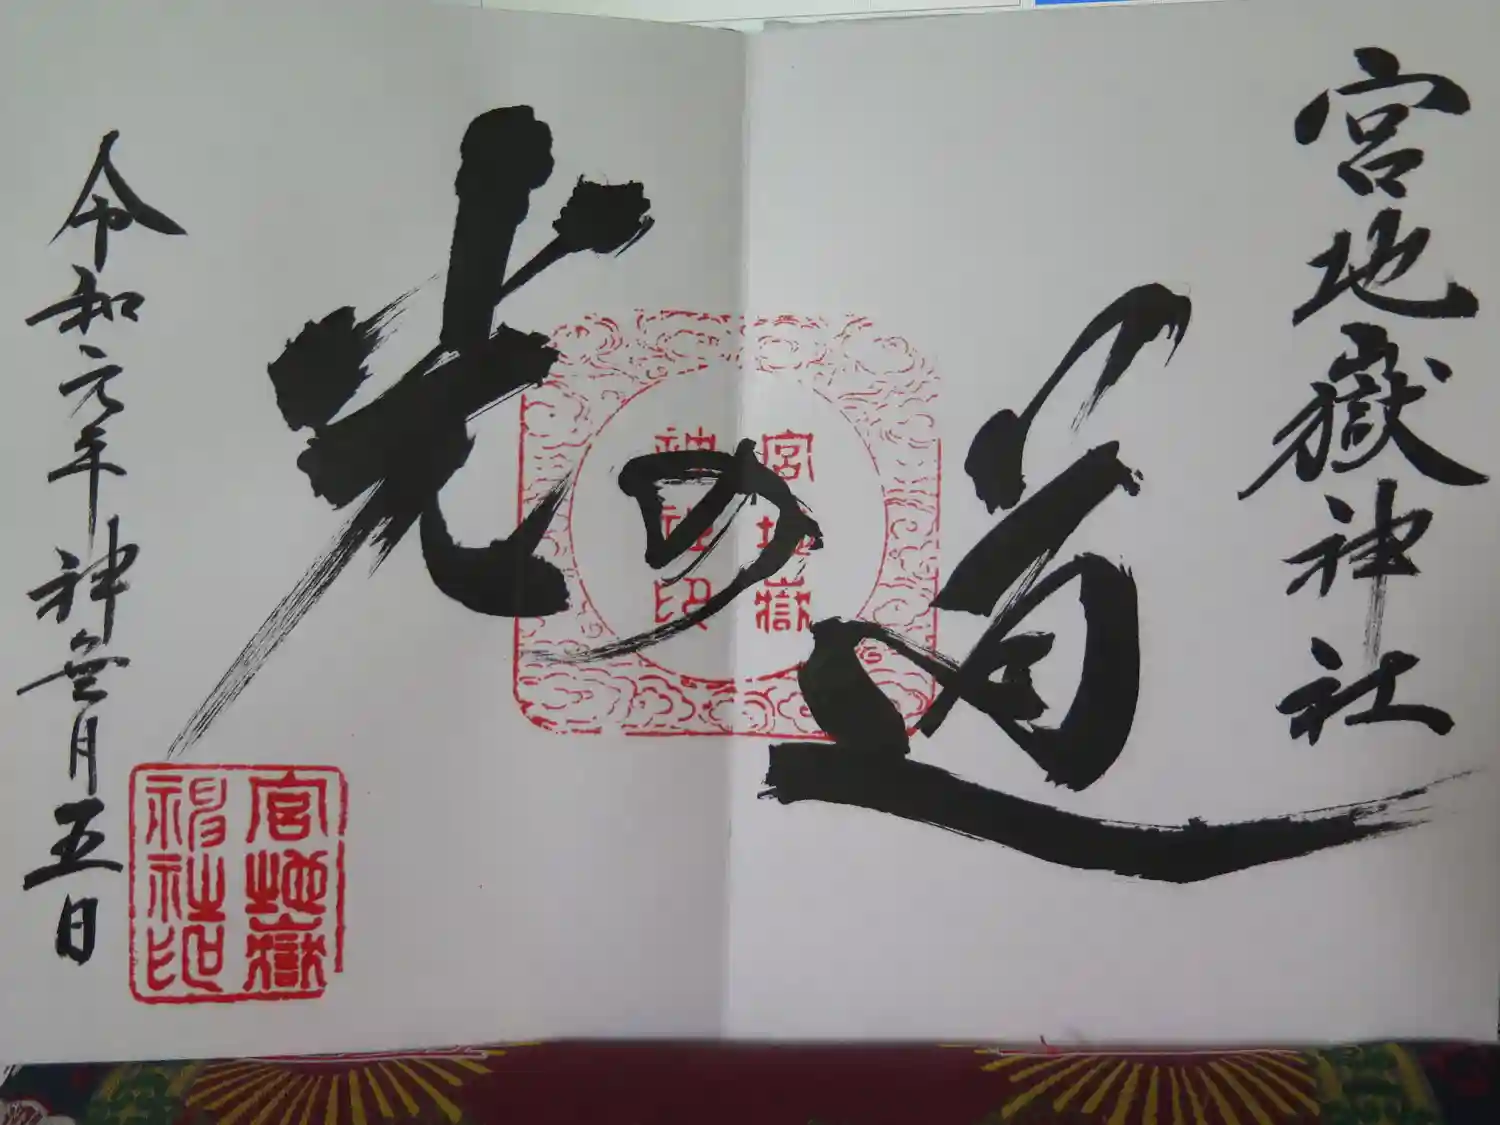 宮地嶽神社
光の道
宮地嶽
神社印
令和元年神無月五日
宮地嶽
神社印